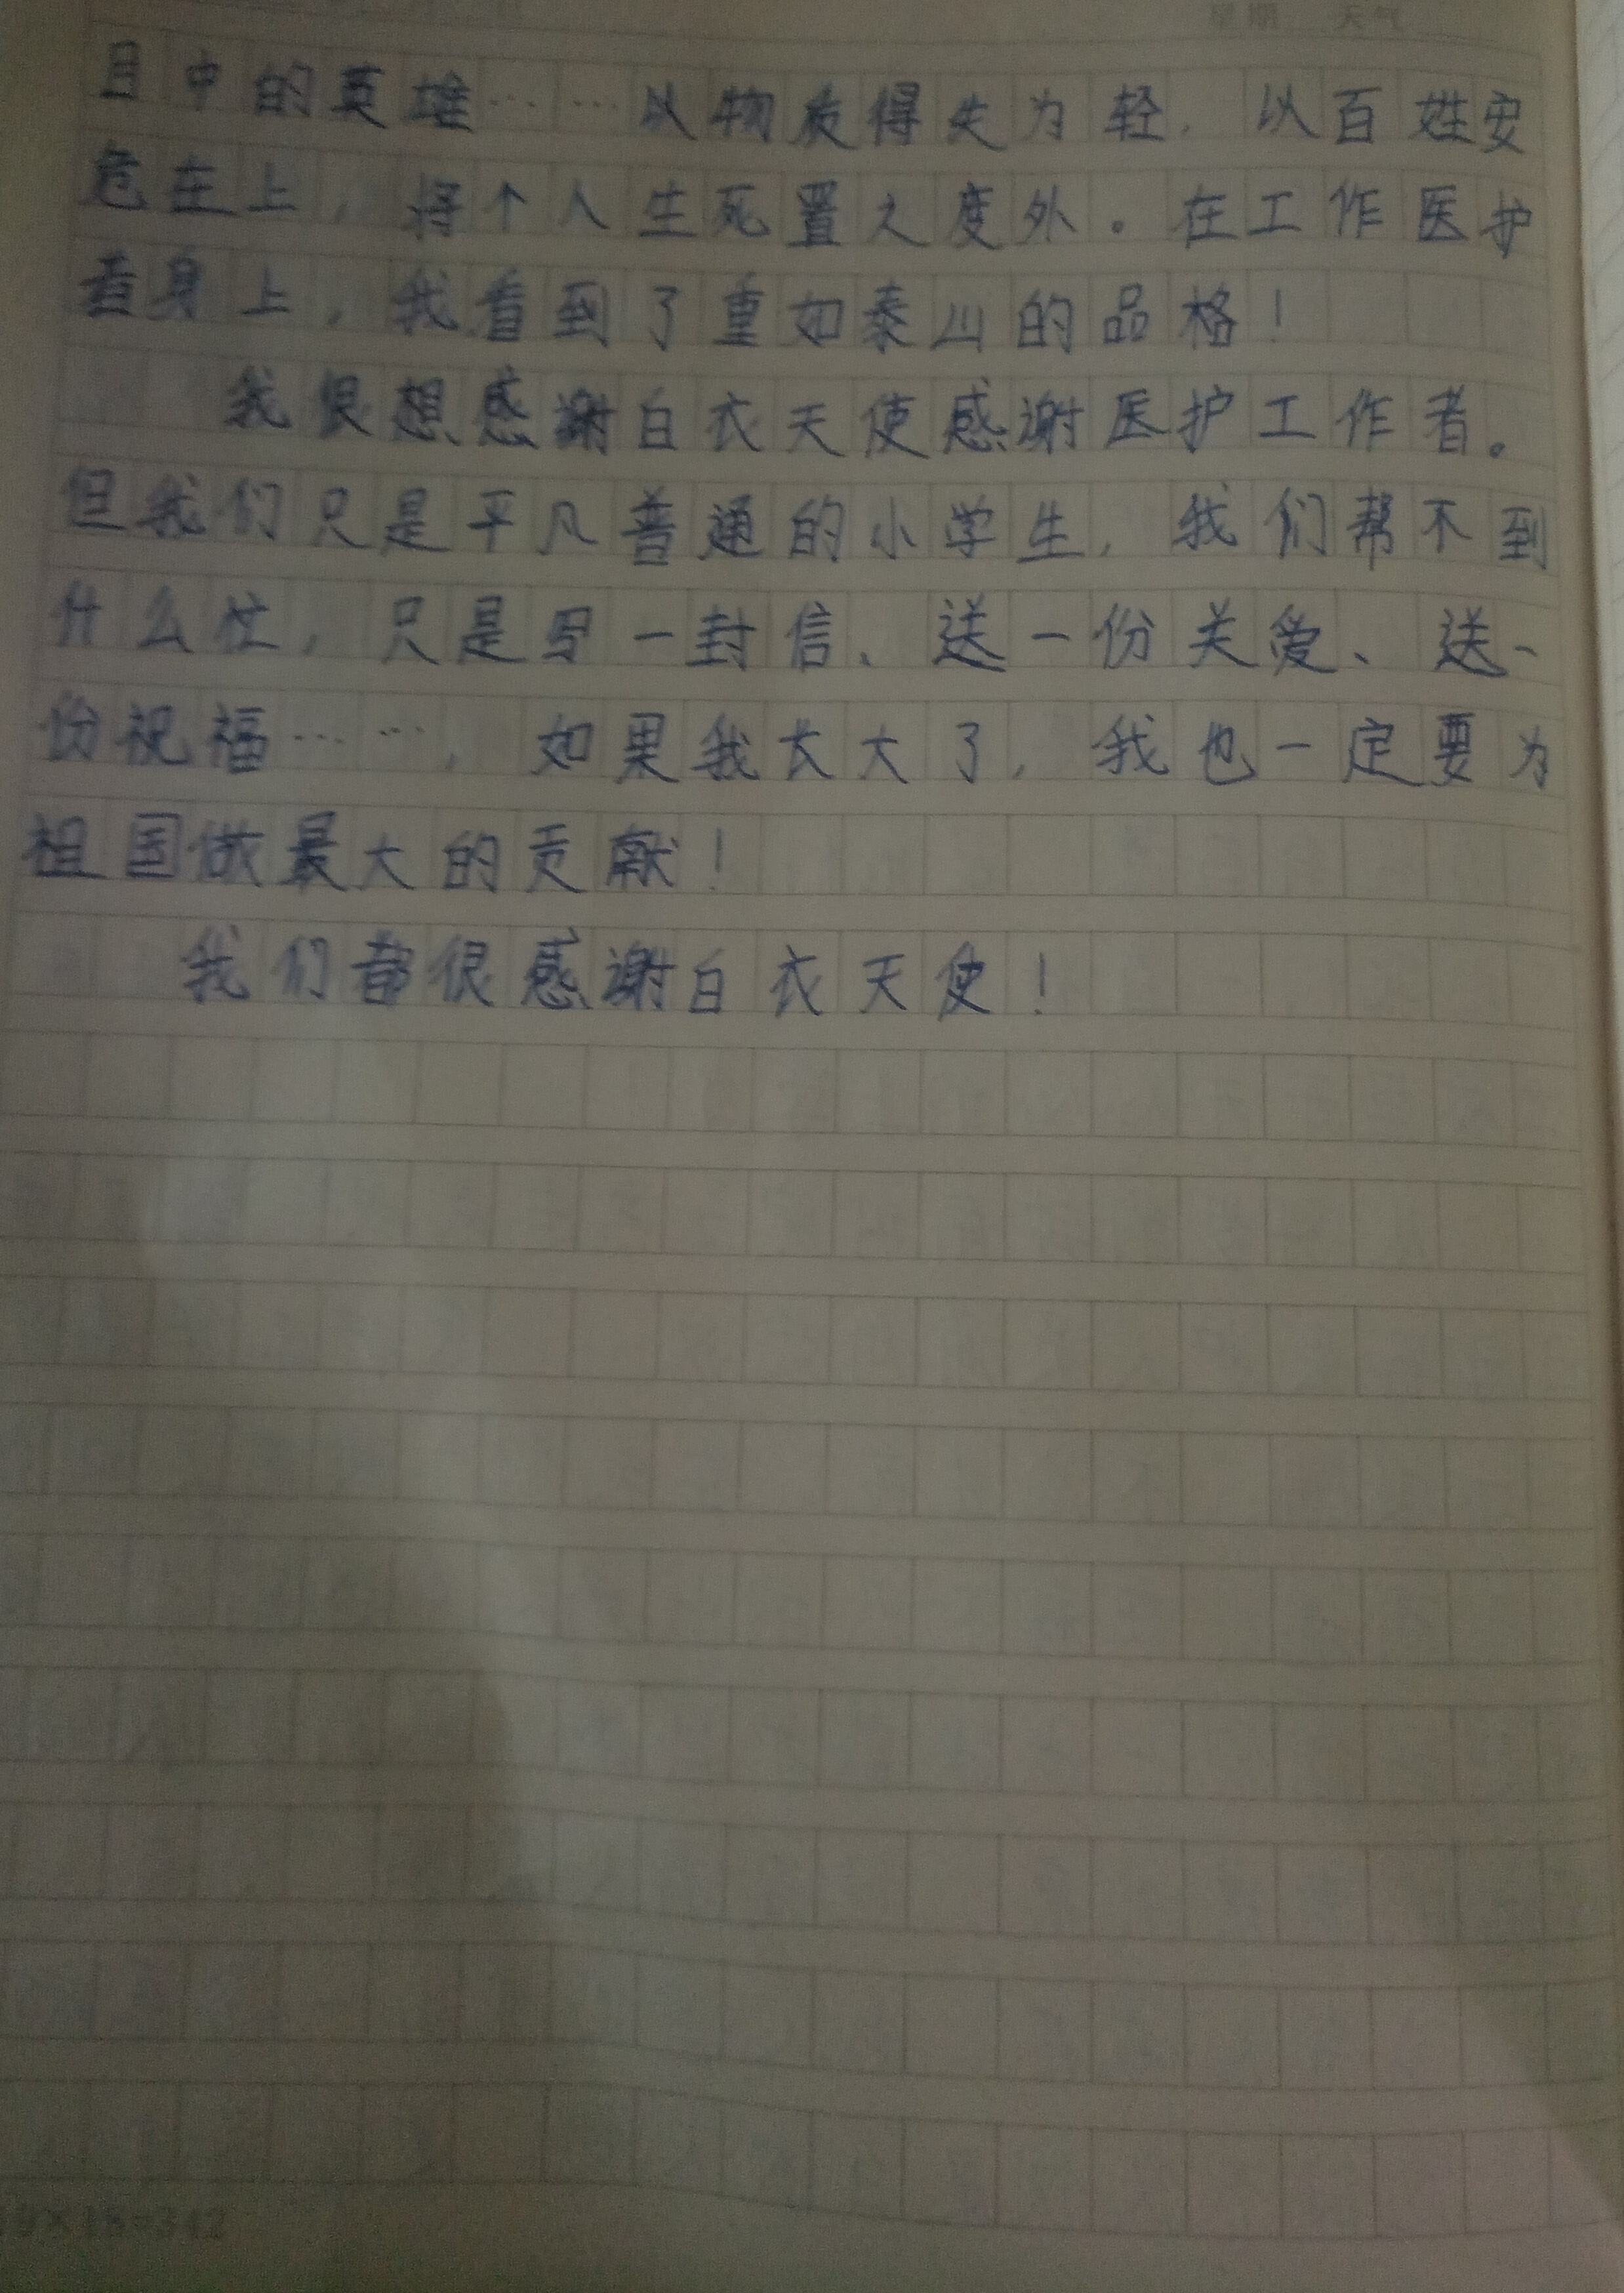 星期 天气
目中的英雄……以物质得失为轻，以百姓安
危在上，将个人生死置之度外。在工作医护
者身上，我看到了重如泰山的品格！
我很想感谢白衣天使感谢医护工作者。
但我们只是平凡普通的小学生，我们帮不到
什么忙，只是写一封信、送一份关爱、送一
份祝福……，如果我长大了，我也一定要为
祖国做最大的贡献！
我们都很感谢白衣天使！
19×18=342